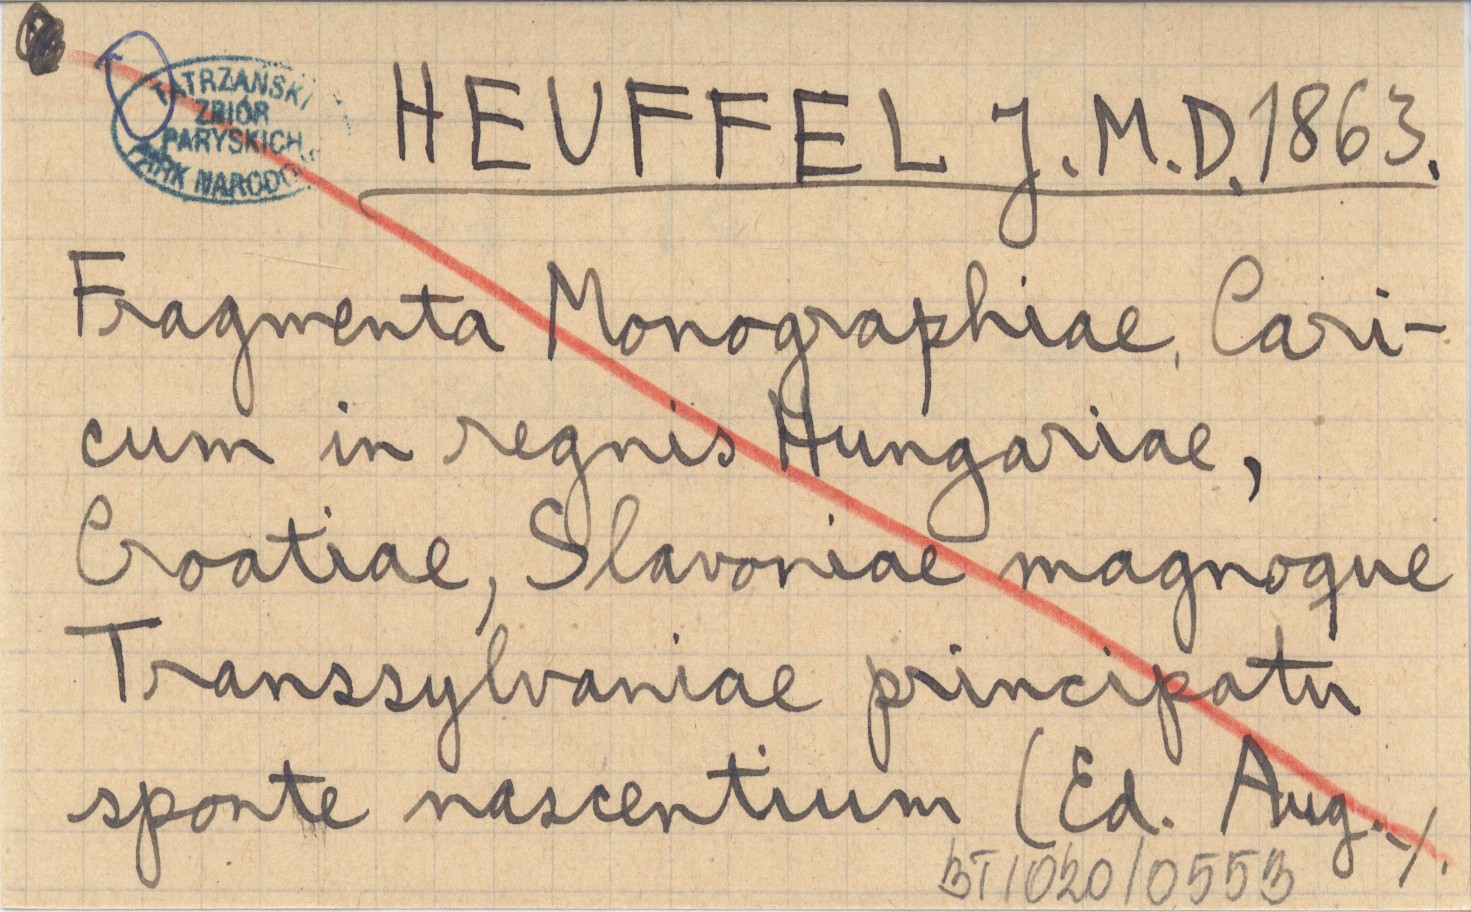 TATRZAŃSKI
ZBIÓR
PARYSKICH
PARK NARODO
HEUFFEL J. M. D. 1863.
Fragmenta Monographiae, Cari-
cum in regnis Hungariae,
Croatiae, Slavoniae magnoque
Transsylvaniae principatu
sponte nascentium (Ed. Aug. -/.
BT/020/0553